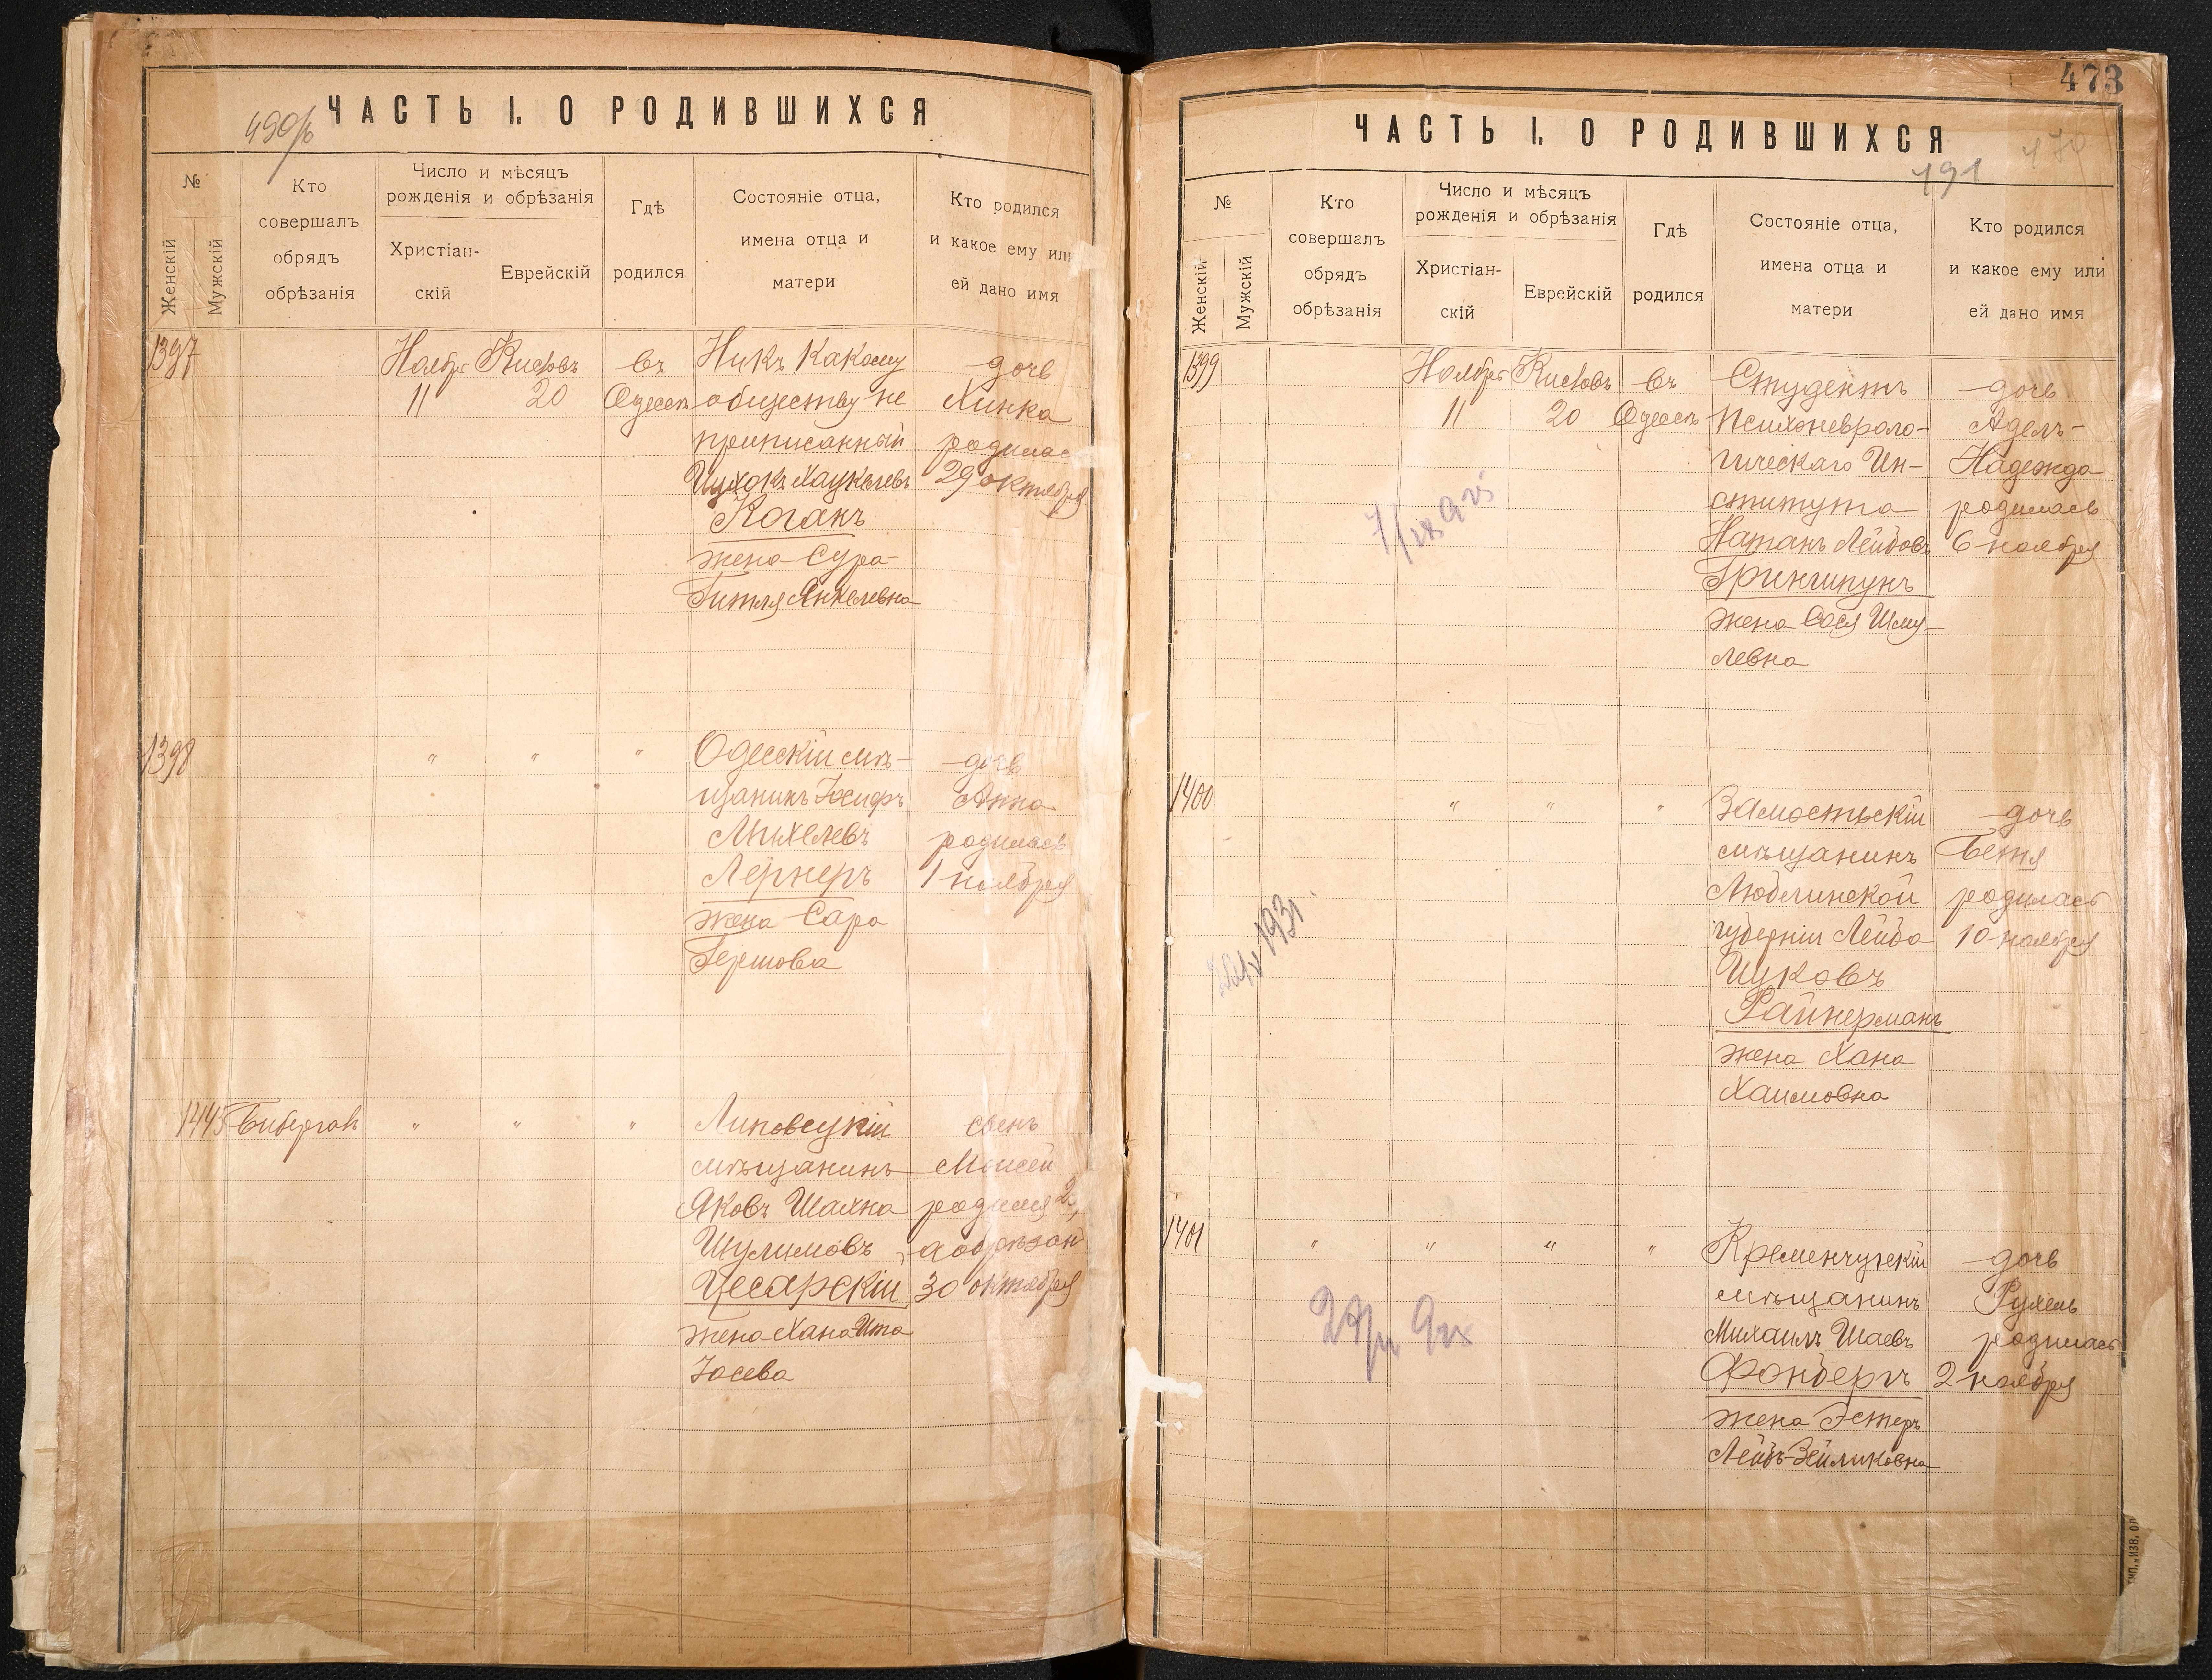 ЧАСТЬ I. О РОДИВШИХСЯ
№
Женскій
Мужскій
Кто
совершалъ
обрядъ
обрѣзанія
Число и мѣсяцъ
рожденія и обрѣзанія
Христіан-
скій
Еврейскій
Гдѣ
родился
Состояніе отца,
имена отца и
матери
Кто родился
и какое ему или
ей дано имя
1397
Ноября
11
Кислевъ
20
въ
Одессѣ
Никъ какому
обществу не
приписанный
Коганъ
жена Сура-
Гитля Янкелевна
дочь
Хинка
родилас
29 октября
1398
" " "
Одесскій мѣ-
щанинъ Іосифъ
Михелевъ
Лернеръ
жена Сара
Гершова
дочь
Анна
родилась
1 ноября
1445
" " "
Липовецкій
мѣщанинъ
Яковъ Шахна
Шулимовъ
Цесарскій
жена Хана Ита
Іосева
сынъ
Моисей
родился 23,
а обрѣзан
30 октября
473
ЧАСТЬ I. О РОДИВШИХСЯ
491
№
Женскій
Мужскій
Кто
совершалъ
обрядъ
обрѣзанія
Число и мѣсяцъ
рожденія и обрѣзанія
Христіан-
скій
Еврейскій
Гдѣ
родился
Состояніе отца,
имена отца и
матери
Кто родился
и какое ему или
ей дано имя
1399
Ноября
11
Кислевъ
20
въ
Одессѣ
Студентъ
Психоневроло-
гическаго Ин-
ститута
Натанъ Лейбовъ
Грингипунъ
жена Сося Шму-
левна
дочь
Адель-
Надежда
родилась
6 ноября
1400
" " "
Замостьскій
мѣщанинъ
Люблинской
губерніи Лейба
Ицковъ
Райнерманъ
жена Хана
Хаимовна
дочь
Бетя
родилась
10 ноября
1401
" " " "
Кременчугскій
мѣщанинъ
Михаилъ Шаевъ
Фонбергъ
жена Эстеръ
Лейбъ-Зейликовна
дочь
Рухель
родилась
2 ноября